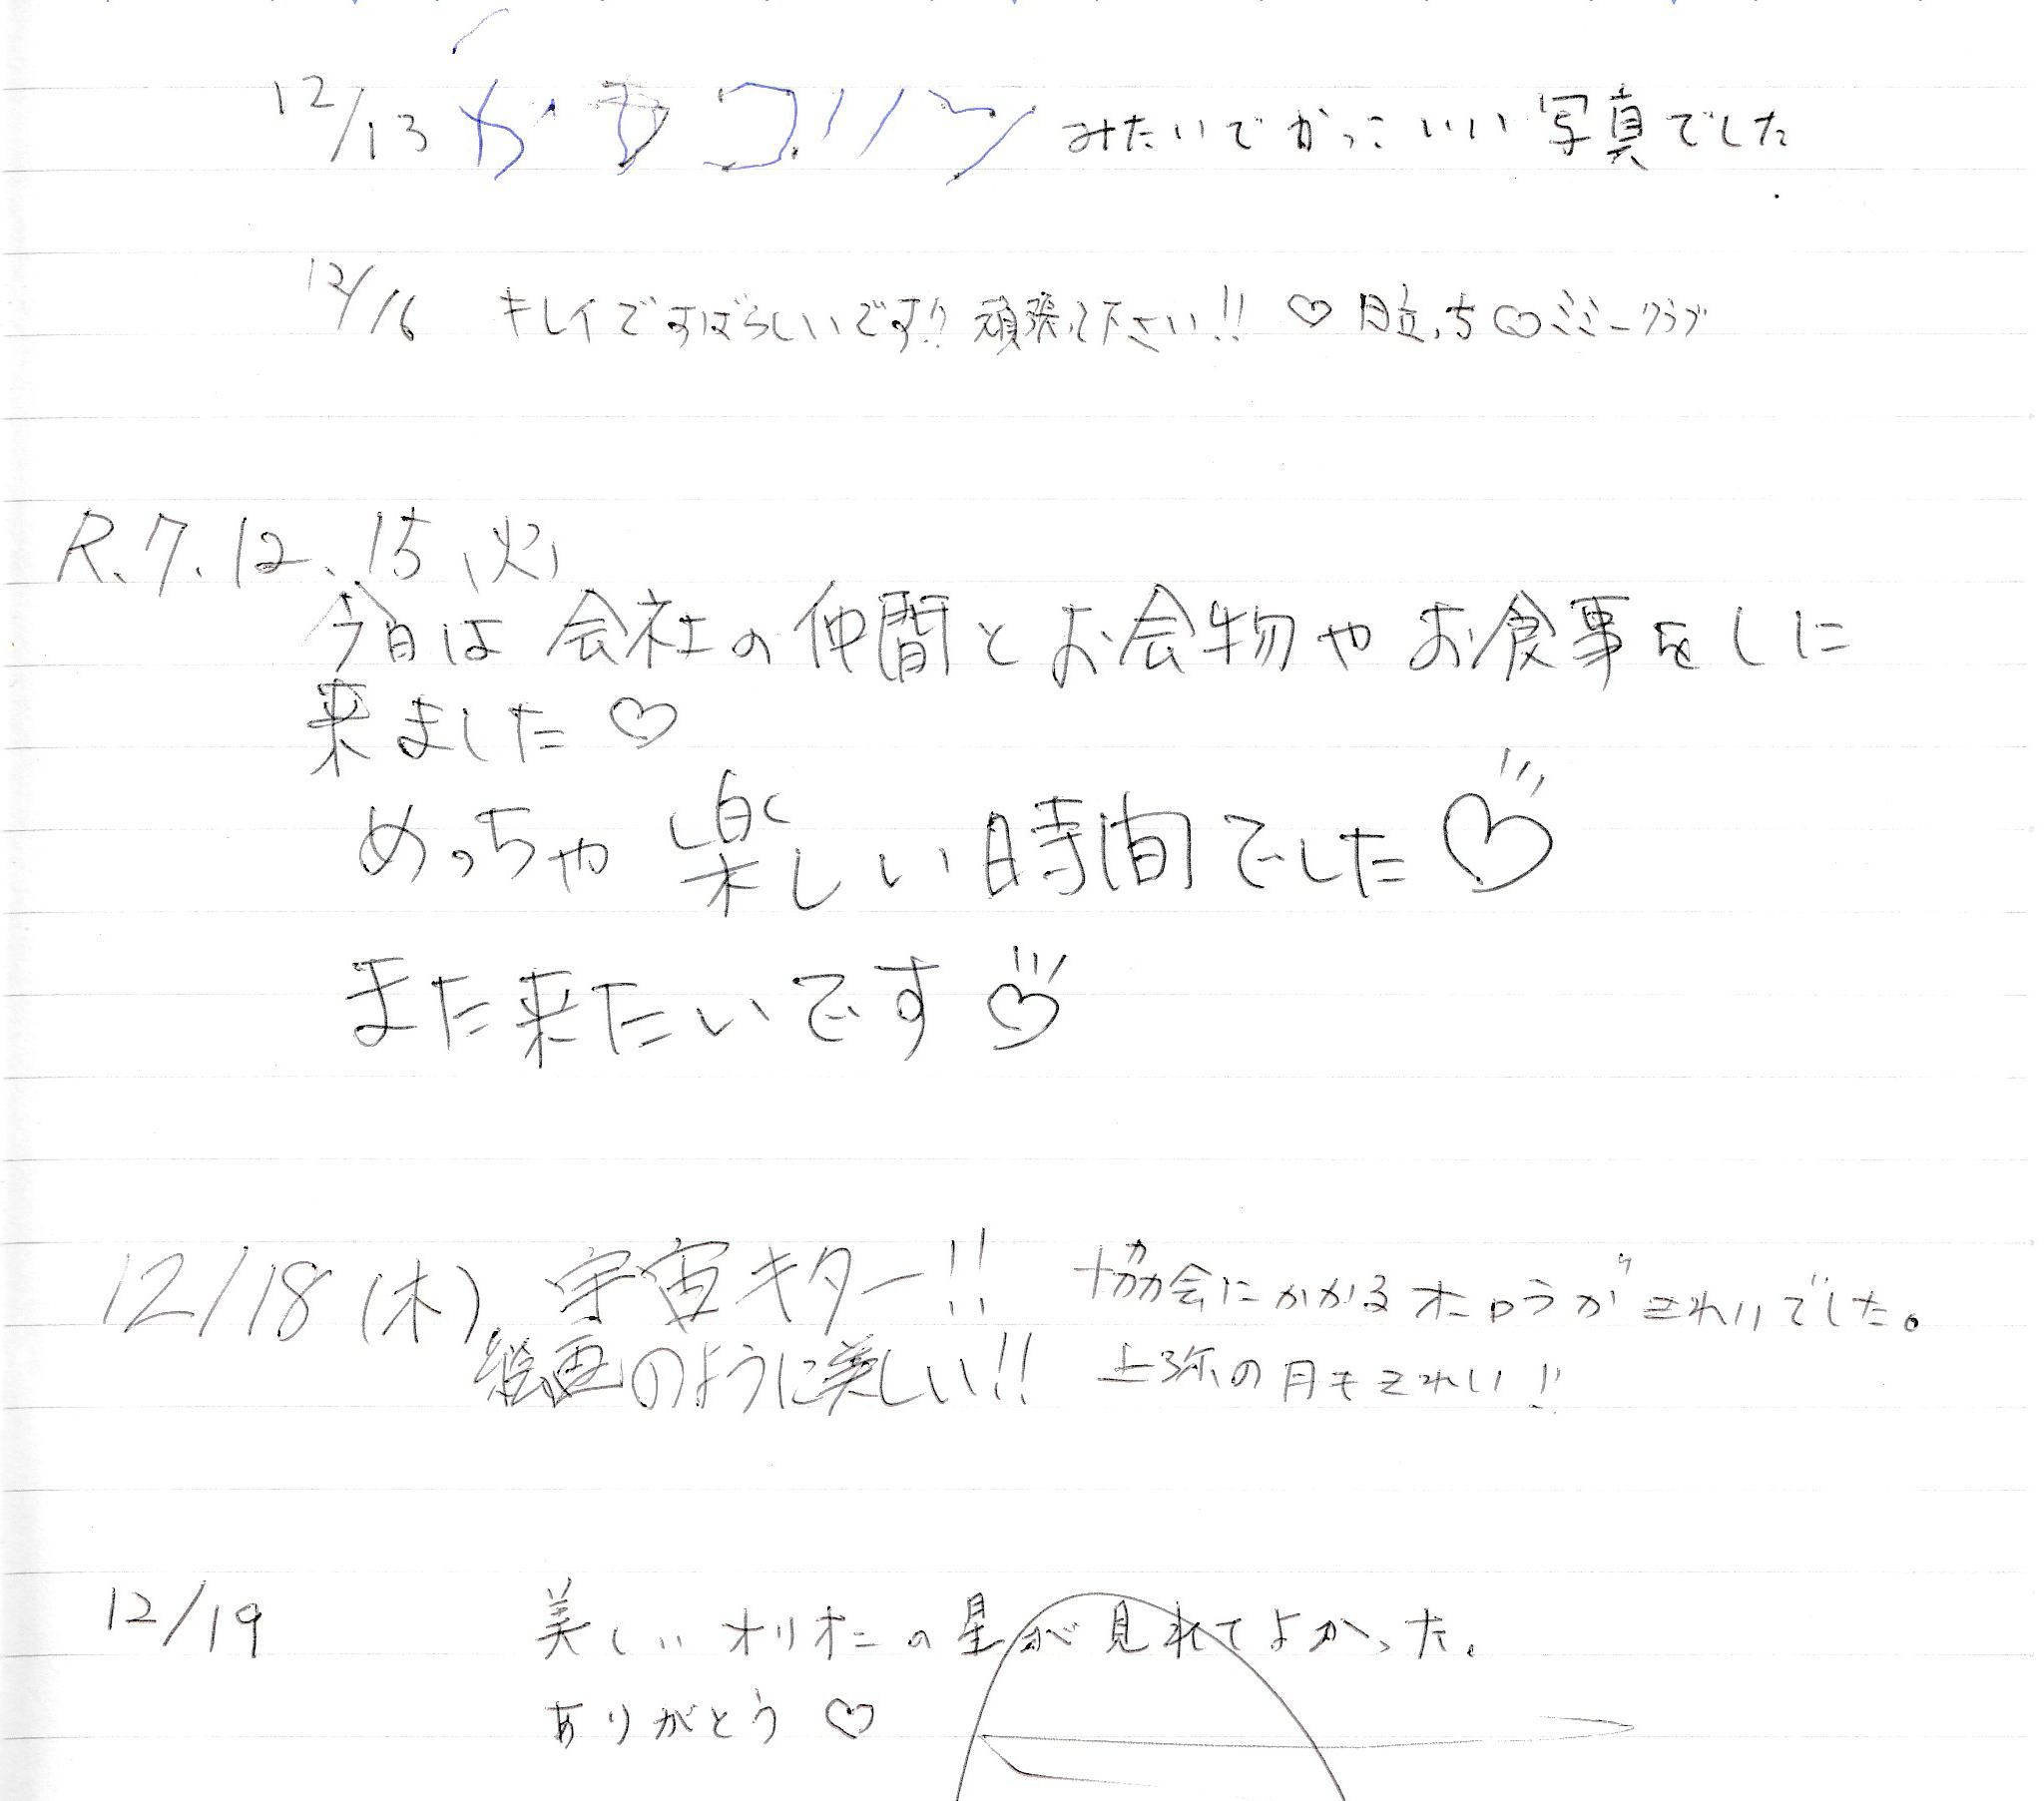 12/13 みたいでかっこいい写真でした
12/16 キレイですばらしいです!! 頑張って下さい!! ♡ 目立っち♡ミミークラブ
R.7.12.15(火)
今日は会社の仲間とお会物やお食事をしに
来ました♡
めっちゃ楽しい時間でした♡
また来たいです♡
12/18(木) 宇宙キター!! 協会にかかるオーロラがきれいでした。
絵画のように美しい!! 上弥の月もきれい!!
12/19 美しいオリオンの星が見れてよかった。
ありがとう♡